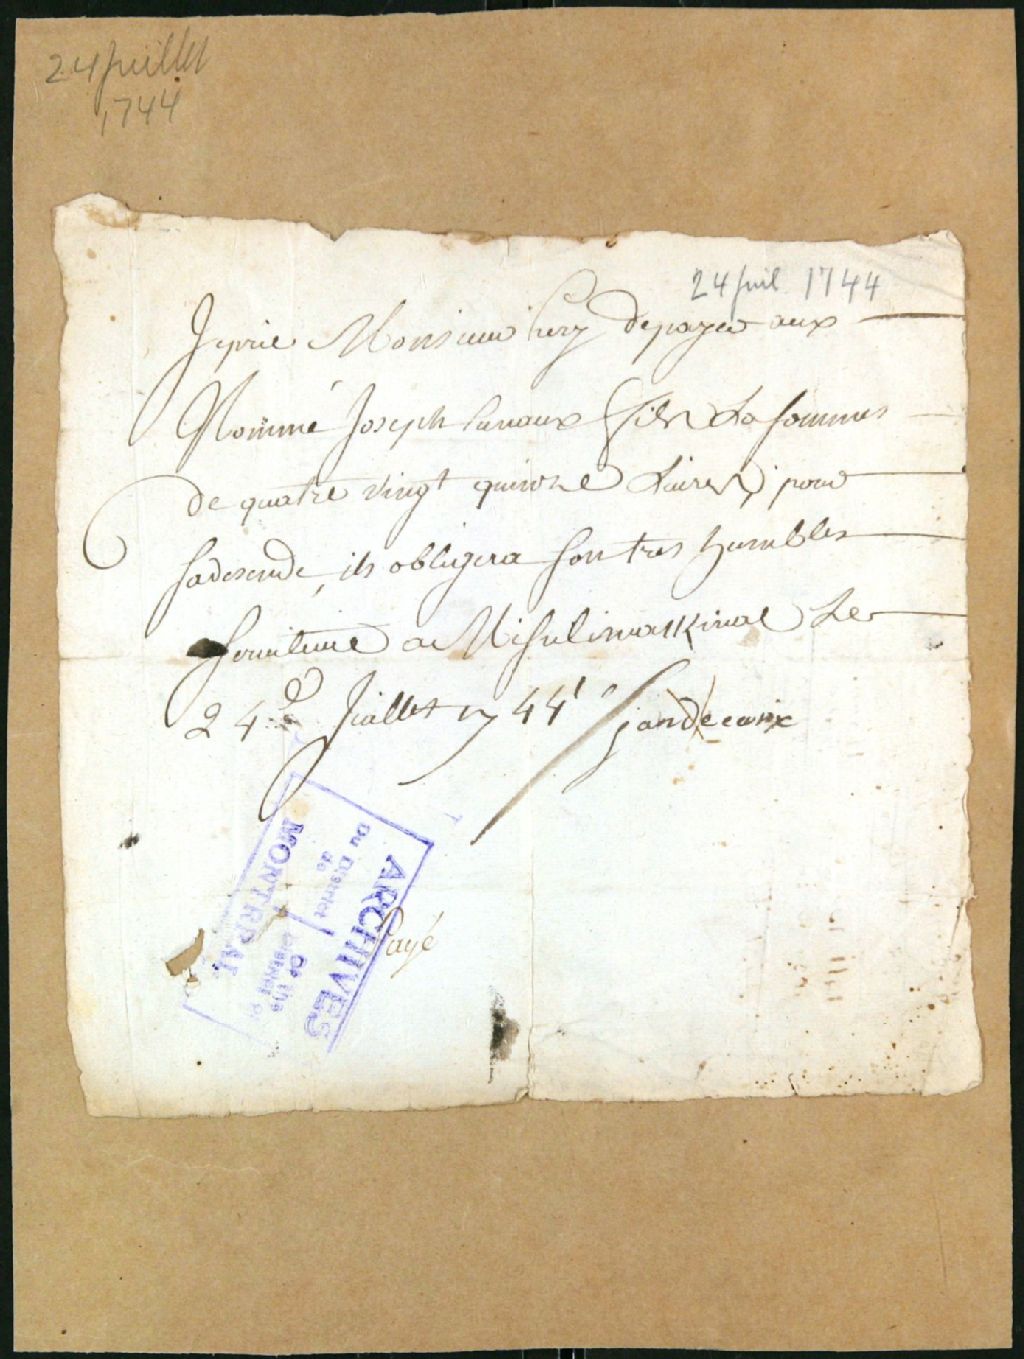 24 Juillet
1744
24 Juil. 1744
Je prie Monsieur hery depayer aux
Nommé Joseph fils La sommes
de quatre vingt quinze Livres pour
sadescende, ils obligera son tres humbles
serviteure a Misilimakinac Le
24e Juillet 1744
Payé
ARCHIVES
Du District
de
Of the
District of
MONTREAL